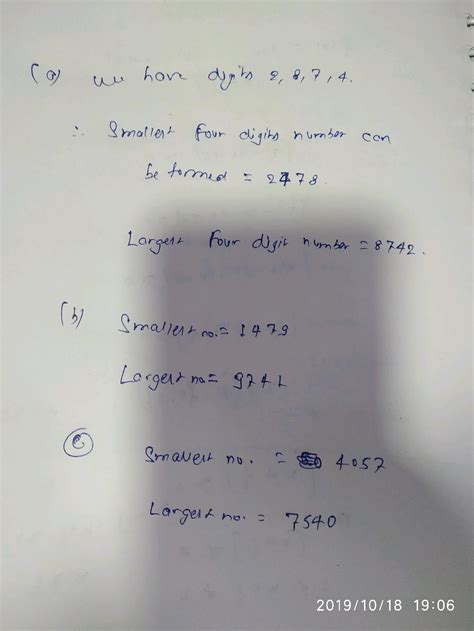 (a) We have digits 2, 8, 7, 4.
∴ Smallest four digits number can
be formed = 2478.
Largest four digit number = 8742.
(b) Smallest no. = 1479
Largest no = 9741
(c)
Smallest no. = 4057
Largest no. = 7540
2019/10/18 19:06